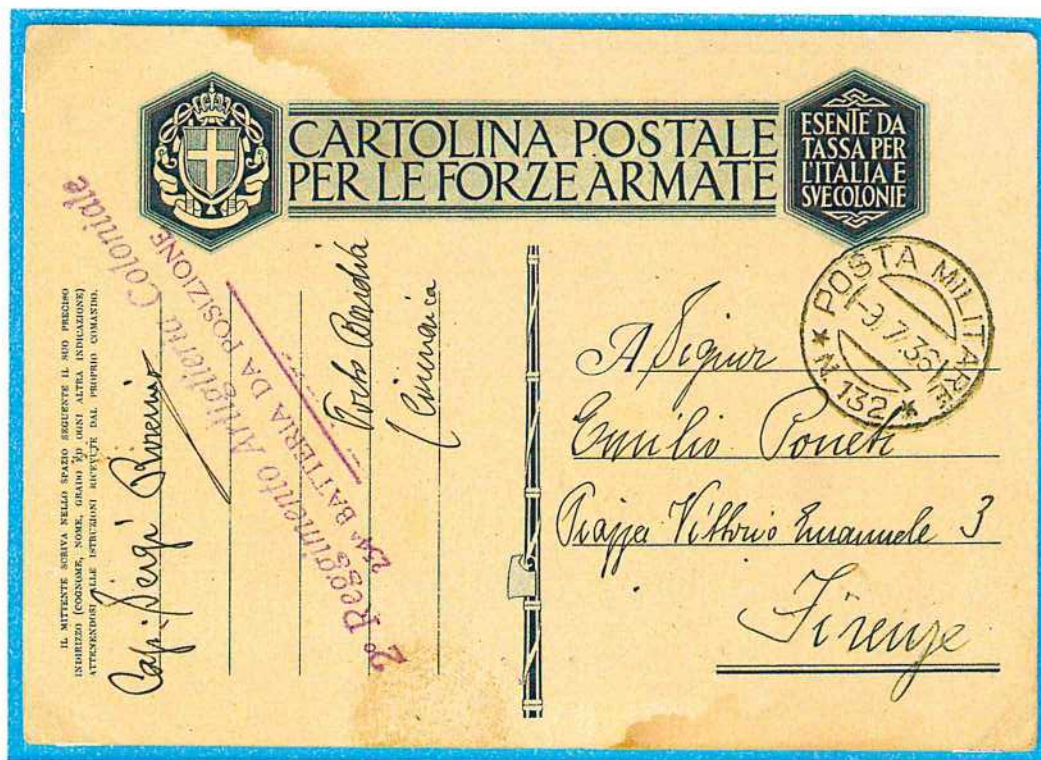 CARTOLINA POSTALE
PER LE FORZE ARMATE
ESENTE DA
TASSA PER
L'ITALIA E
SVE COLONIE
IL MITTENTE SCRIVA NELLO SPAZIO SEGUENTE IL SUO PRECISO
INDIRIZZO (COGNOME, NOME, GRADO ED OGNI ALTRA INDICAZIONE)
ATTENENDOSI ALLE ISTRUZIONI RICEVUTE DAL PROPRIO COMANDO.
Sergi
2º Reggimento Artiglieria Coloniale
BATTERIA DA POSIZIONE
Porto Bardia
Cirenaica
★ POSTA MILITARE ★
-9.7.36
N. 132
A Signor
Emilio
Piazza Vittorio Emanuele 3
Firenze